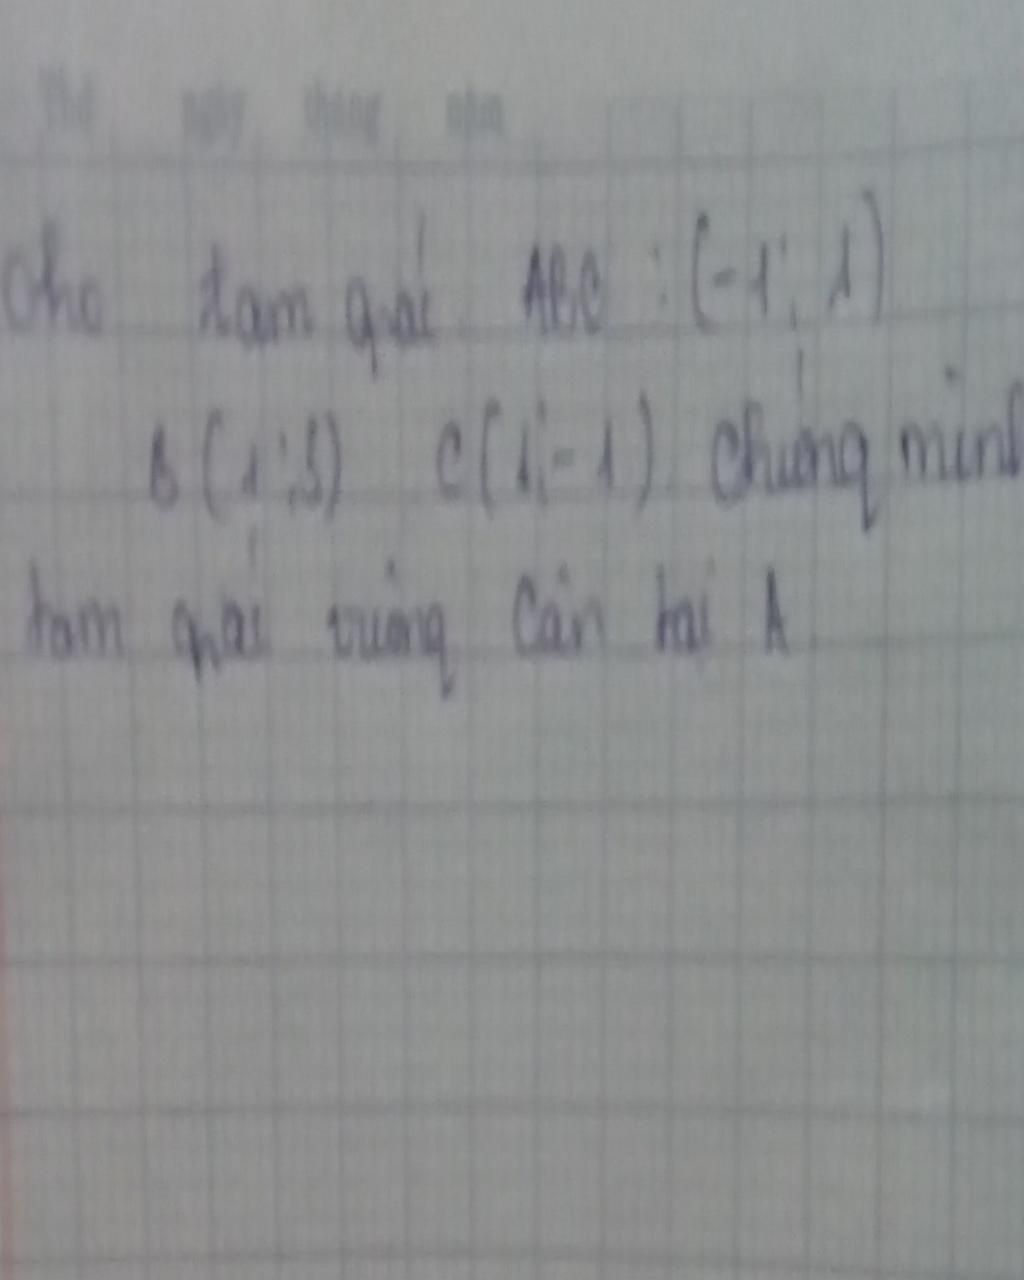 Thứ ngày tháng năm
Cho tam giác ABC : (-1; 1)
B (1; 3) C (1; -1) chứng minh
tam giác vuông cân tại A